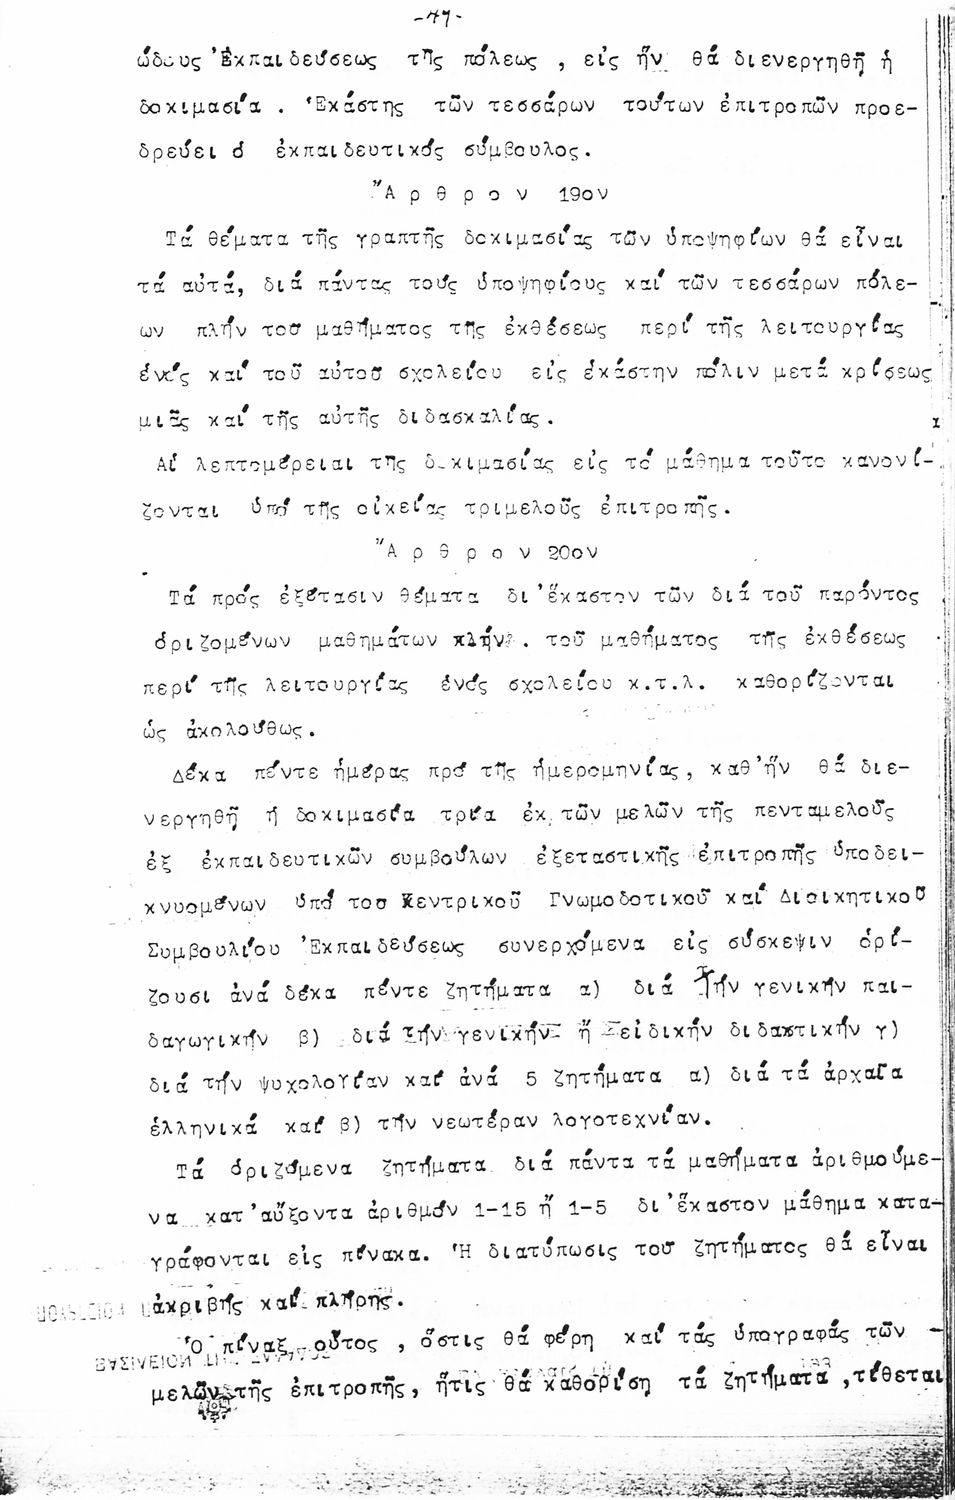 -47-
ώδους Ἐκπαιδεύσεως τῆς πόλεως , εἰς ἥν θά διενεργηθῇ ἡ
δοκιμασία . Ἑκάστης τῶν τεσσάρων τούτων ἐπιτροπῶν προε-
δρεύει ὁ ἐκπαιδευτικός σύμβουλος.
Ἄ ρ θ ρ ο ν 19ον
Τά θέματα τῆς γραπτῆς δοκιμασίας τῶν ὑποψηφίων θά εἶναι
τά αὐτά, διά πάντας τούς ὑποψηφίους καί τῶν τεσσάρων πόλε-
ων πλήν τοῦ μαθήματος τῆς ἐκθέσεως περί τῆς λειτουργίας
ἑνός καί τοῦ αὐτοῦ σχολείου εἰς ἑκάστην πόλιν μετά κρίσεως
μιᾶς καί τῆς αὐτῆς διδασκαλίας.
Αἱ λεπτομέρειαι τῆς δοκιμασίας εἰς τό μάθημα τοῦτο κανονί-
ζονται ὑπό τῆς οἰκείας τριμελοῦς ἐπιτροπῆς.
Ἄ ρ θ ρ ο ν 20ον
Τά πρός ἐξέτασιν θέματα δι'ἕκαστον τῶν διά τοῦ παρόντος
ὁριζομένων μαθημάτων πλήν . τοῦ μαθήματος τῆς ἐκθέσεως
περί τῆς λειτουργίας ἑνός σχολείου κ.τ.λ. καθορίζονται
ὡς ἀκολούθως.
Δέκα πέντε ἡμέρας πρό τῆς ἡμερομηνίας, καθ'ἥν θά διε-
νεργηθῇ ἡ δοκιμασία τρία ἐκ τῶν μελῶν τῆς πενταμελοῦς
ἐξ ἐκπαιδευτικῶν συμβούλων ἐξεταστικῆς ἐπιτροπῆς ὑποδει-
κνυομένων ὑπό τοῦ Κεντρικοῦ Γνωμοδοτικοῦ καί Διοικητικοῦ
Συμβουλίου Ἐκπαιδεύσεως συνερχόμενα εἰς σύσκεψιν ὁρί-
ζουσι ἀνά δέκα πέντε ζητήματα α) διά τήν γενικήν παι-
δαγωγικήν β) διά τήν γενικήν ἤ εἰδικήν διδακτικήν γ)
διά τήν ψυχολογίαν καί ἀνά 5 ζητήματα α) διά τά ἀρχαῖα
ἑλληνικά καί β) τήν νεωτέραν λογοτεχνίαν.
Τά ὁριζόμενα ζητήματα διά πάντα τά μαθήματα ἀριθμούμε-
να κατ'αὔξοντα ἀριθμόν 1-15 ἤ 1-5 δι'ἕκαστον μάθημα κατα-
γράφονται εἰς πίνακα. Ἡ διατύπωσις τοῦ ζητήματος θά εἶναι
ἀκριβής καί πλήρης.
Ὁ πίναξ οὗτος , ὅστις θά φέρῃ καί τάς ὑπογραφάς τῶν -
μελῶν τῆς ἐπιτροπῆς, ἥτις θά καθορίσῃ τά ζητήματα ,τίθεται